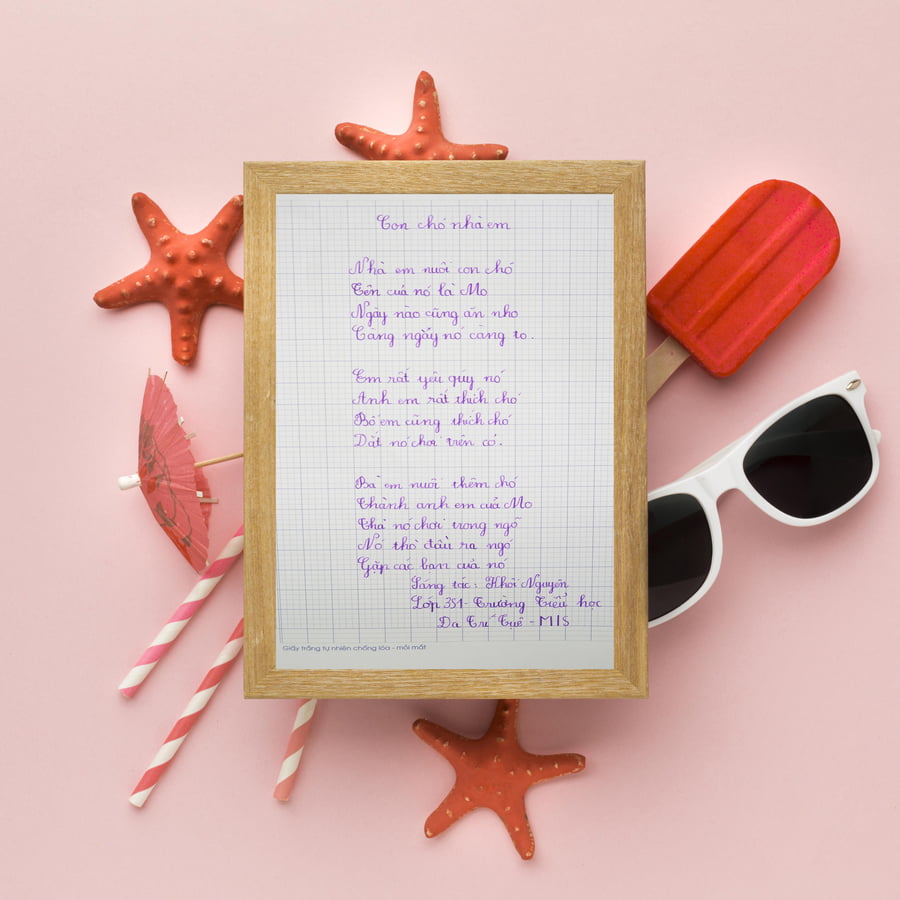 Con chó nhà em
Nhà em nuôi con chó
Tên của nó là Mo
Ngày nào cũng ăn nho
Càng ngày nó càng to.
Em rất yêu quý nó
Anh em rất thích chó
Bố em cũng thích chó
Dắt nó chơi trên cỏ.
Bà em nuôi thêm chó
Thành anh em của Mo
Thả nó chơi trong ngõ
Nó thò đầu ra ngó
Gặp các bạn của nó
Sáng tác: Khôi Nguyên
Lớp 3S1 - Trường Tiểu học
Đa Trí Tuệ - MIS
Giấy trắng tự nhiên chống lóa - mỏi mắt